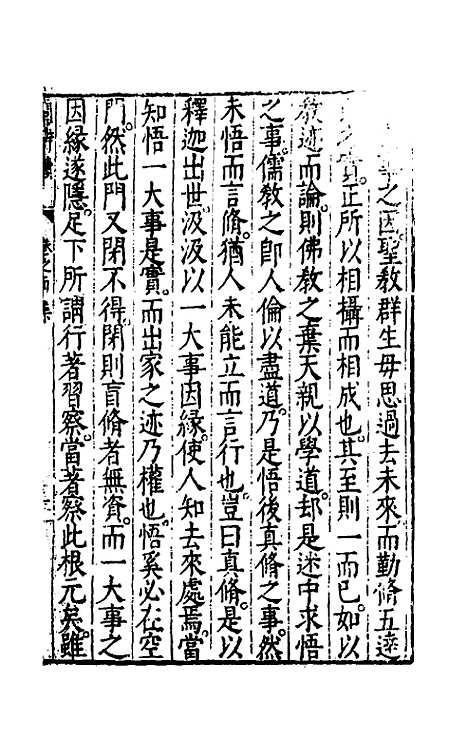 之因聖教群生毋思過去未來而勤脩五逵
實正所以相攝而相成也其至則一而已如以
教迹而論則佛教之棄天親以學道却是迷中求悟
之事儒教之卽人倫以盡道乃是悟後真脩之事然
未悟而言脩猶人未能立而言行也豈曰真脩是以
釋迦出世汲汲以一大事因緣使人知去來處焉當
知悟一大事是實而出家之迹乃權也悟奚必在空
門然此門又閉不得閉則盲脩者無資而一大事之
因緣遂隱足下所謂行著習察當著察此根元矣雖